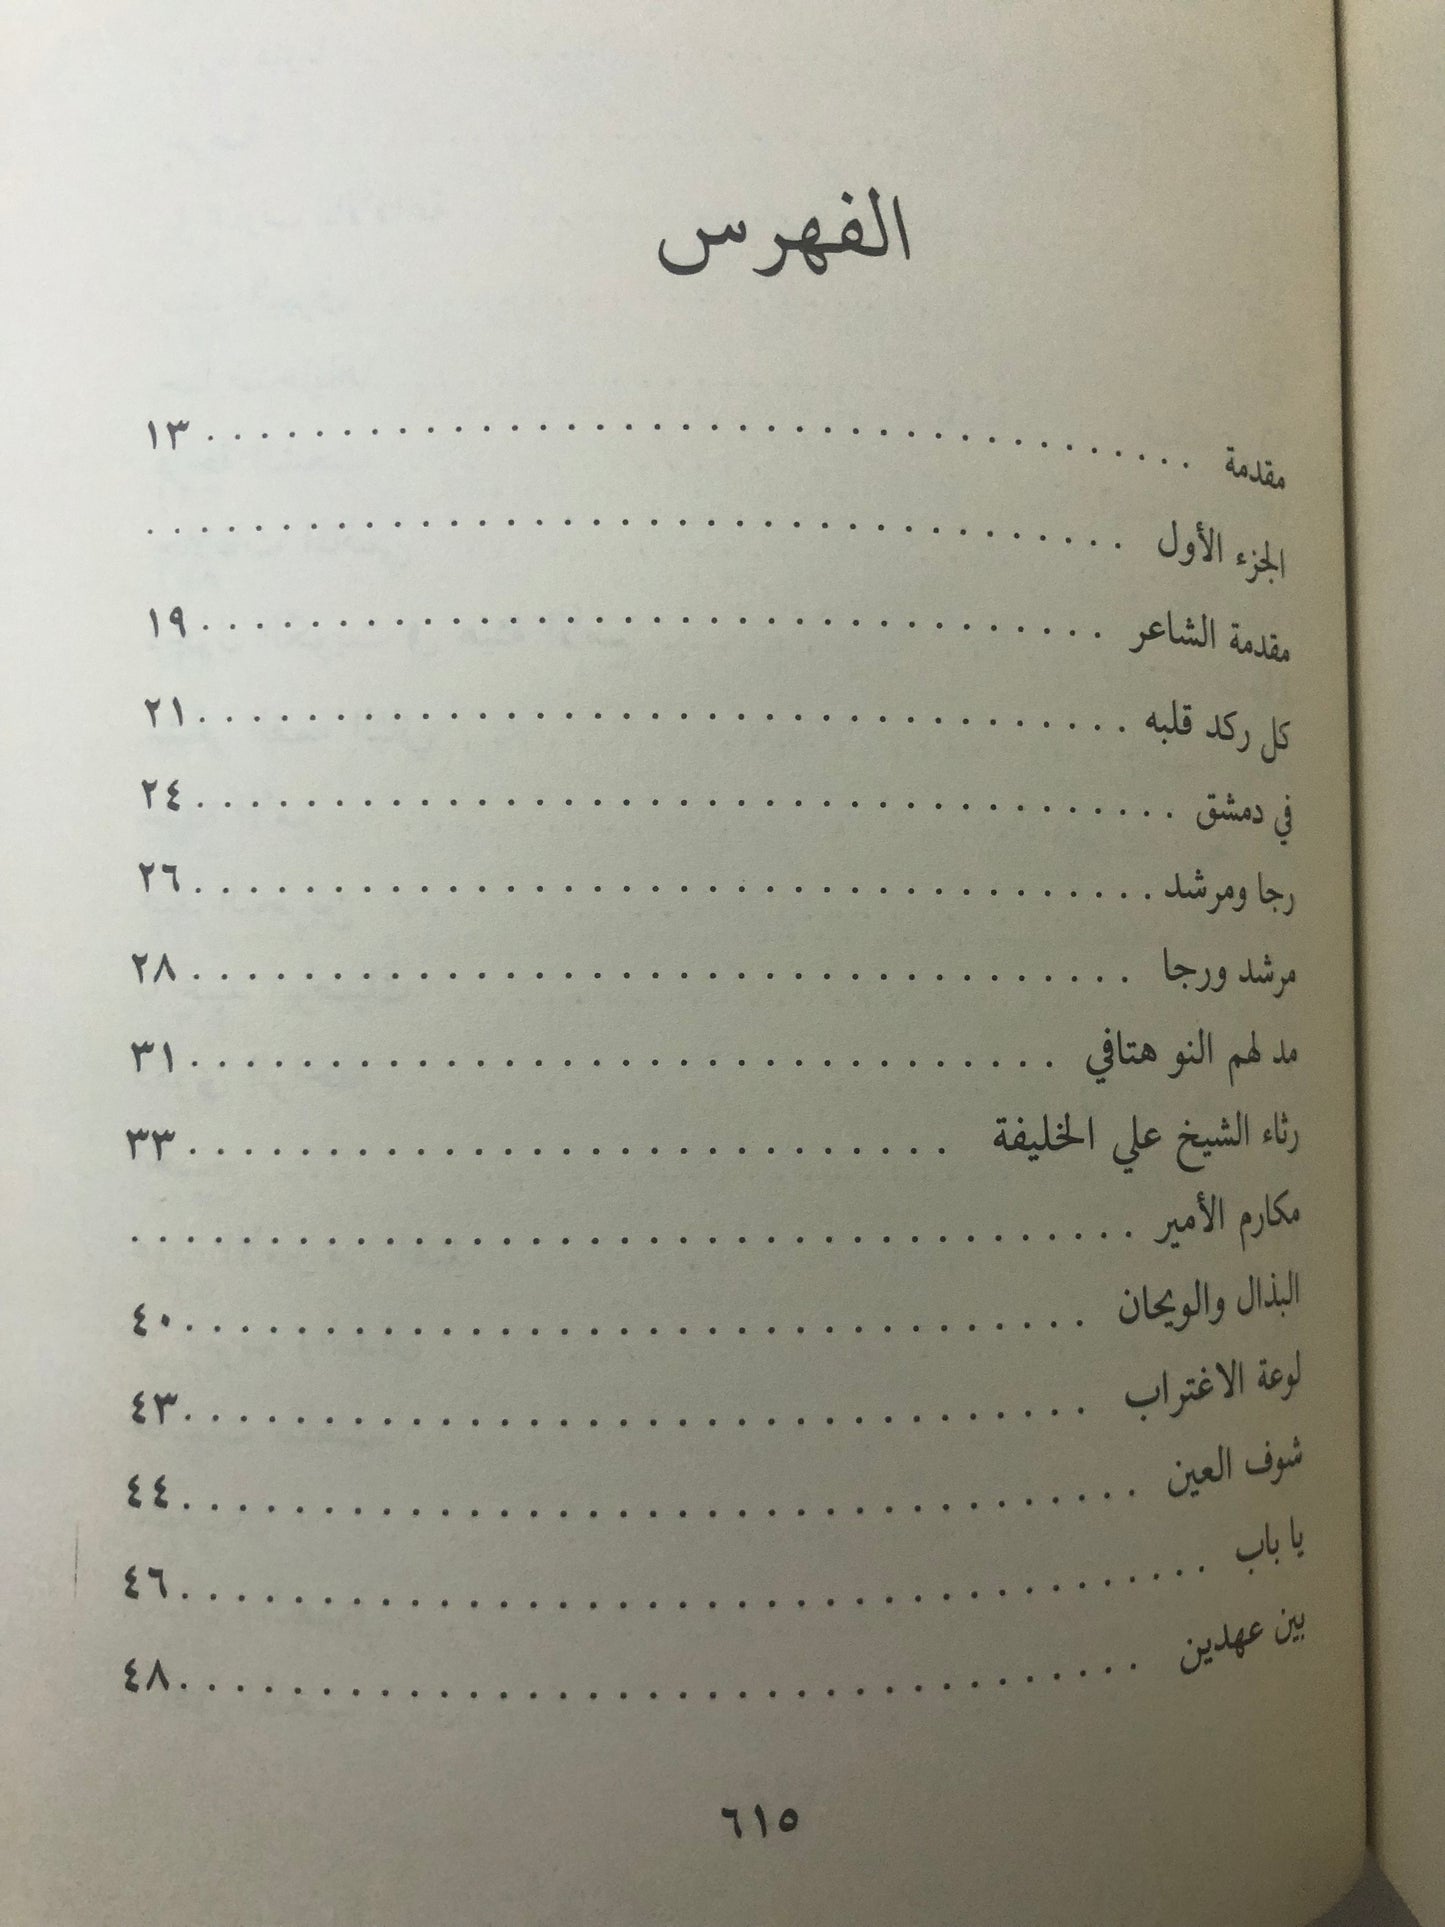 الفهرس
مقدمة . . . . . . . . . . . . . . . . . . . . . . . . . . . . . . . . . . . ١٣
الجزء الأول . . . . . . . . . . . . . . . . . . . . . . . . . . . . . . . . . . .
مقدمة الشاعر . . . . . . . . . . . . . . . . . . . . . . . . . . . . . . . . ١٩
كل ركد قلبه . . . . . . . . . . . . . . . . . . . . . . . . . . . . . . . . . ٢١
في دمشق . . . . . . . . . . . . . . . . . . . . . . . . . . . . . . . . . . . ٢٤
رجا ومرشد . . . . . . . . . . . . . . . . . . . . . . . . . . . . . . . . . . ٢٦
مرشد ورجا . . . . . . . . . . . . . . . . . . . . . . . . . . . . . . . . . ٢٨
مد لهم النو هتافي . . . . . . . . . . . . . . . . . . . . . . . . . . . . . . ٣١
رثاء الشيخ علي الخليفة . . . . . . . . . . . . . . . . . . . . . . . . . . . ٣٣
مكارم الأمير . . . . . . . . . . . . . . . . . . . . . . . . . . . . . . . . . . .
البذال والويحان . . . . . . . . . . . . . . . . . . . . . . . . . . . . . . . . ٤٠
لوعة الاغتراب . . . . . . . . . . . . . . . . . . . . . . . . . . . . . . . . ٤٣
شوف العين . . . . . . . . . . . . . . . . . . . . . . . . . . . . . . . . . . ٤٤
يا باب . . . . . . . . . . . . . . . . . . . . . . . . . . . . . . . . . . . . ٤٦
بين عهدين . . . . . . . . . . . . . . . . . . . . . . . . . . . . . . . . . . ٤٨
٦١٥